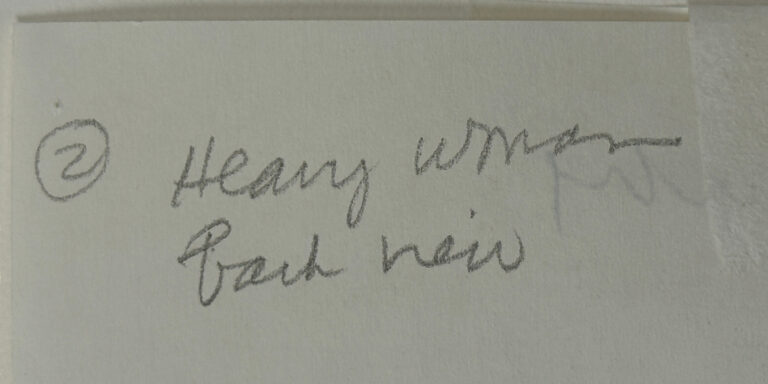 ② Heavy woman
back view